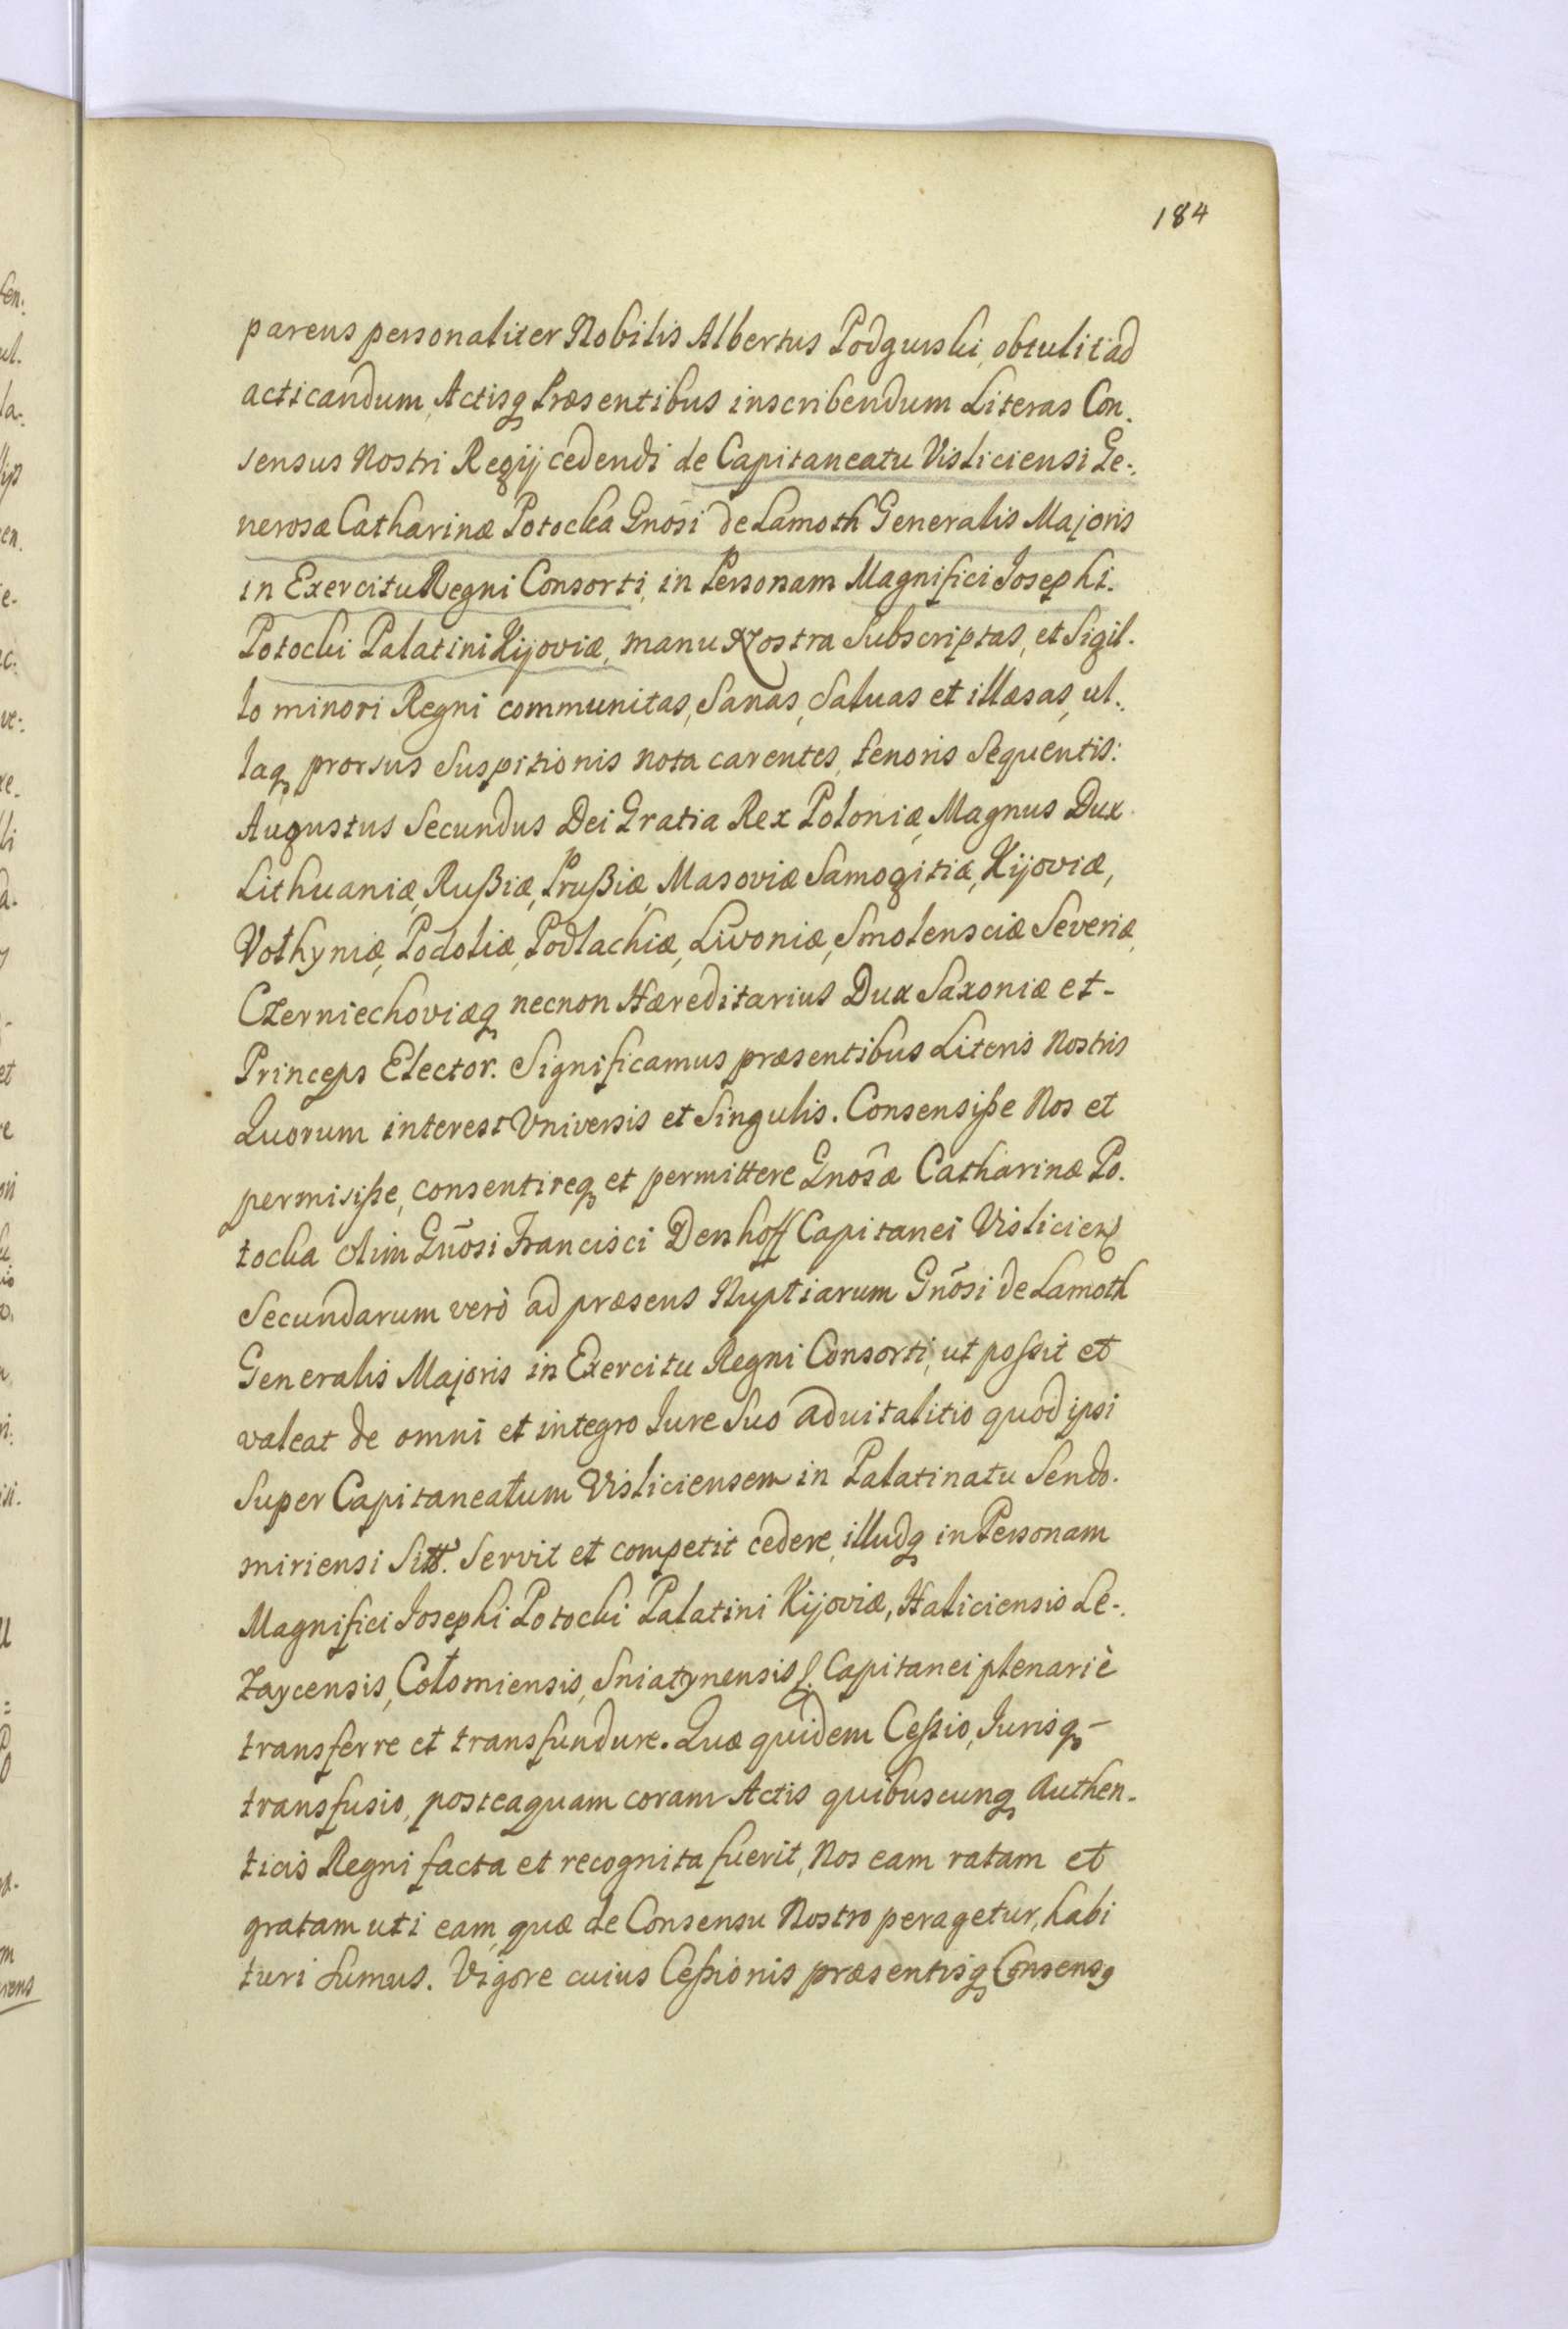 184
pareus personaliter Nobilis Albertus Podgurski, obtulit ad
acticandum, Actisq præsentibus inscribendum Literas Con.
sensus Nostri Regij cedendi de Capitaneatu Visliciensi Ge-.
nerosæ Catharinæ Potocka Gnōsi de Lamoth Generalis Majoris
in Exercitu Regni Consorti, in Personam Magnifici Josephi.
Potocki Palatini Kijoviæ, manu Nostra Subscriptas, et Sigil.
lo minori Regni communitas, Sanas, Saluas et illæsas, ul.
laq prorsus Suspitionis nota carentes, tenoris Sequentis:
Augustus Secundus Dei Gratia Rex Poloniæ, Magnus Dux
Lithuaniæ, Rußiæ, Prußiæ, Masoviæ Samogitiæ, Kijoviæ,
Volhyniæ, Podoliæ, Podlachiæ, Livoniæ, Smolensciæ Severiæ,
Czerniechoviæq necnon Hæreditarius Dux Saxoniæ et-
Princeps Elector. Significamus præsentibus Literis Nostris
Quorum interest Vniversis et Singulis. Consensiße Nos et
permisiße, consentireq et permittere Gnōsæ Catharinæ Po.
tocka olim Gnōsi Francisci Denhoff Capitanei Vislicien
Secundarum verò ad præsens Nuptiarum Gnōsi de Lamoth
Generalis Majoris in Exercitu Regni Consorti, ut poßit et
valeat de omni et integro Jure Suo aduitalitio quod ipsi
Super Capitaneatum Visliciensem in Palatinatu Sendo.
miriensi Sitt. Servit et competit cedere, illudq in Personam
Magnifici Josephi Potocki Palatini Kijoviæ, Haliciensis Le-.
zaycensis, Colomiensis, Sniatynensis Capitanei plenariè
transferre et transfundure. Quæ quidem Ceßio, Jurisq-
transfusio, posteaquam coram Actis quibuscunq Authen-
ticis Regni facta et recognita fuerit, Nos eam ratam et
gratam uti eam, quæ de Consensu Nostro peragetur, habi
turi Sumus. Vigore cuius Ceßionis præsentisq Consensq